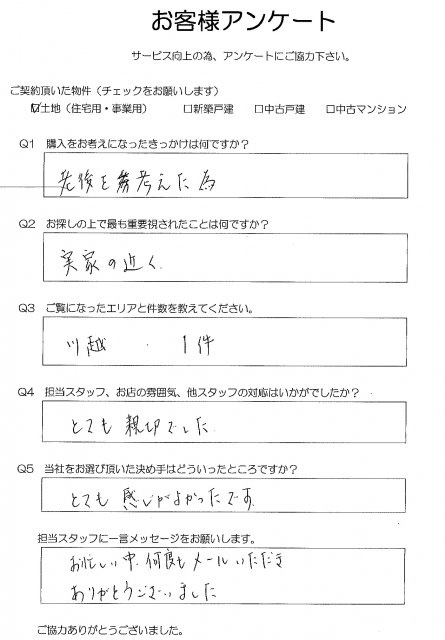 お客様アンケート
サービス向上の為、アンケートにご協力下さい。
ご契約頂いた物件（チェックをお願いします）
☑土地（住宅用・事業用） □新築戸建 □中古戸建 □中古マンション
Q1 購入をお考えになったきっかけは何ですか？
老後を考えた為
Q2 お探しの上で最も重要視されたことは何ですか？
実家の近く
Q3 ご覧になったエリアと件数を教えてください。
川越 ・ 1件
Q4 担当スタッフ、お店の雰囲気、他スタッフの対応はいかがでしたか？
とても親切でした
Q5 当社をお選び頂いた決め手はどういったところですか？
とても感じがよかったです
担当スタッフに一言メッセージをお願いします。
お忙しい中、何度もメールいただき
ありがとうございました
ご協力ありがとうございました。